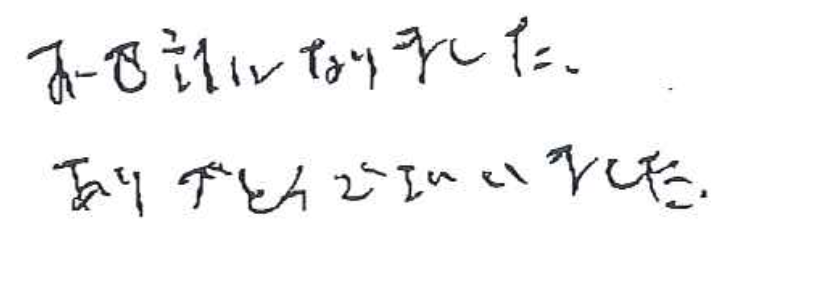 お世話になりました。
ありがとうございました。